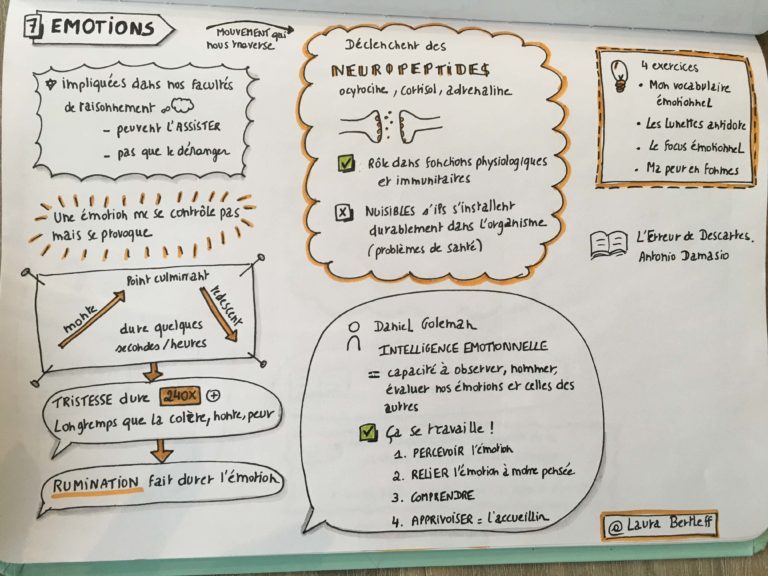 7 EMOTIONS
MOUVEMENT qui
nous traverse
impliquées dans nos facultés
de raisonnement
- peuvent l'ASSISTER
- pas que le déranger
Une émotion ne se contrôle pas
mais se provoque
Point culminant
monte
redescent
dure quelques
secondes/heures
TRISTESSE dure 240X +
longtemps que la colère, honte, peur
RUMINATION fait durer l'émotion
Déclenchent des
NEUROPEPTIDES
ocytocine, cortisol, adrenaline
Rôle dans fonctions physiologiques
et immunitaires
x NUISIBLES s'ils s'installent
durablement dans l'organisme
(problèmes de santé)
Daniel Goleman
INTELLIGENCE EMOTIONNELLE
= capacité à observer, nommer,
évaluer nos émotions et celles des
autres
Ça se travaille !
1. PERCEVOIR l'émotion
2. RELIER l'émotion à notre pensée
3. COMPRENDRE
4. APPRIVOISER = l'accueillir
4 exercices
• Mon vocabulaire
émotionnel
• Les Lunettes antidote
• Le focus émotionnel
• Ma peur en formes
L'Erreur de Descartes,
Antonio Damasio
@ Laura Bertleff